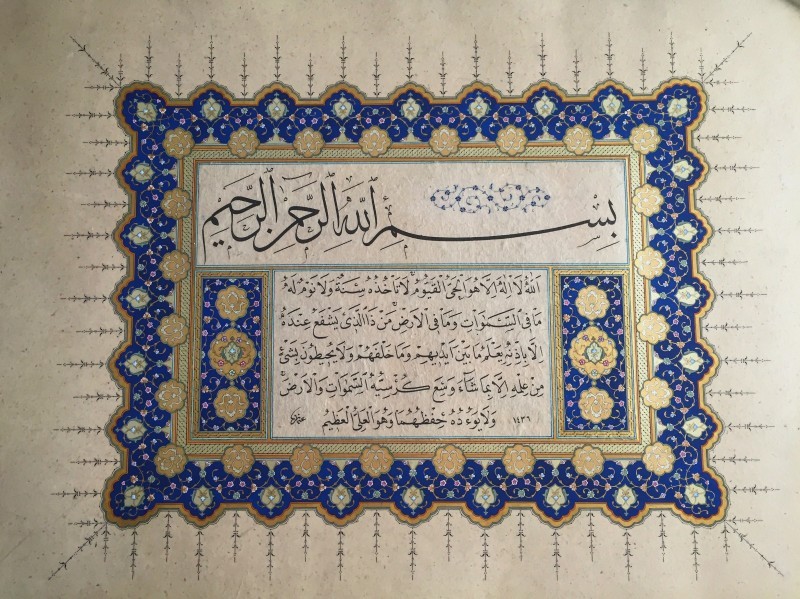 بِسْمِ ٱللّٰهِ ٱلرَّحْمٰنِ ٱلرَّحِيْمِ
اَللّٰهُ لَا اِلٰهَ اِلَّا هُوَ الْحَيُّ الْقَيُّومُ لَا تَأْخُذُهُ سِنَةٌ وَلَا نَوْمٌ لَهُ
مَا فِي السَّمٰوَاتِ وَمَا فِي الْاَرْضِ مَنْ ذَا الَّذِي يَشْفَعُ عِنْدَهُ
اِلَّا بِاِذْنِهِ يَعْلَمُ مَا بَيْنَ اَيْدِيهِمْ وَمَا خَلْفَهُمْ وَلَا يُحِيطُونَ بِشَيْءٍ
مِنْ عِلْمِهِ اِلَّا بِمَا شَاءَ وَسِعَ كُرْسِيُّهُ السَّمٰوَاتِ وَالْاَرْضَ
وَلَا يَؤُدُهُ حِفْظُهُمَا وَهُوَ الْعَلِيُّ الْعَظِيمُ
١٤٣٦